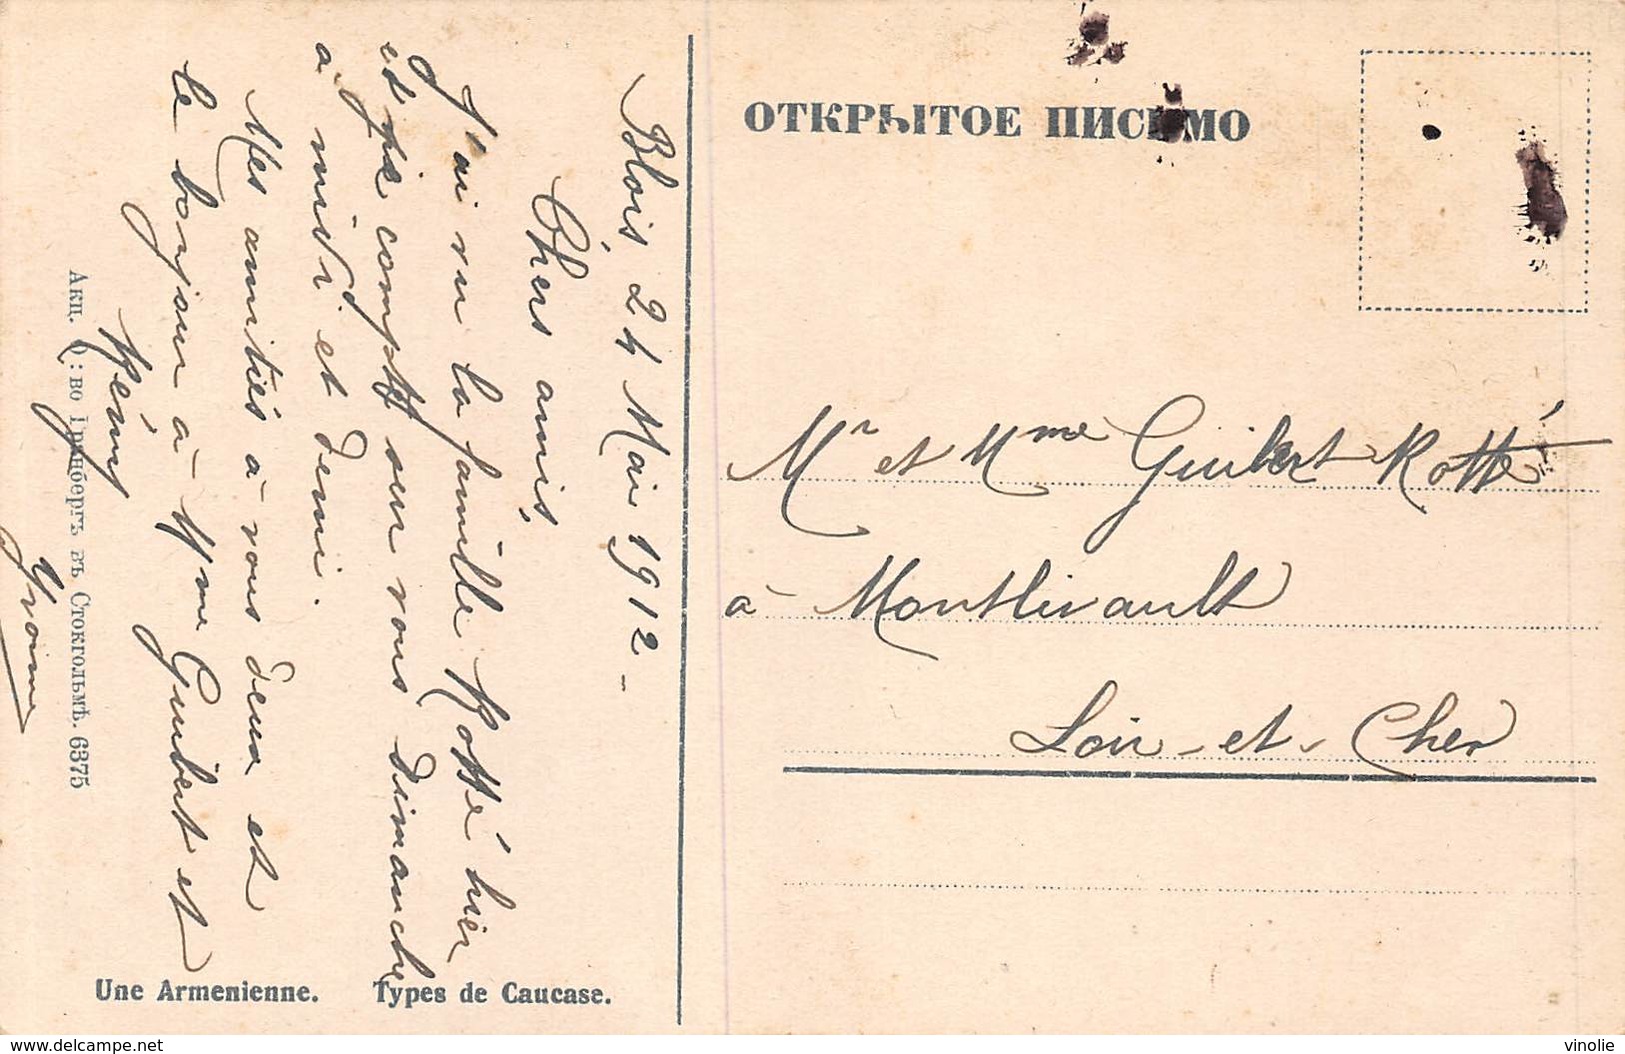 ОТКРЫТОЕ ПИСЬМО
Blois 24 Mai 1912 -
Chers amis,
J'ai vu la famille Rotté hier
et je compte sur vous dimanche
à midi et demi.
Mes amitiés à vous deux et
le bonjour à Mme Guibert et
Rémy
Yvonne
Mr et Mme Guibert Rotté
à Montlivault
Loir-et-Cher
Акц. О:во Гринбергъ въ Стокгольмѣ. 6375
Une Armenienne. Types de Caucase.
www.delcampe.net
vinolie